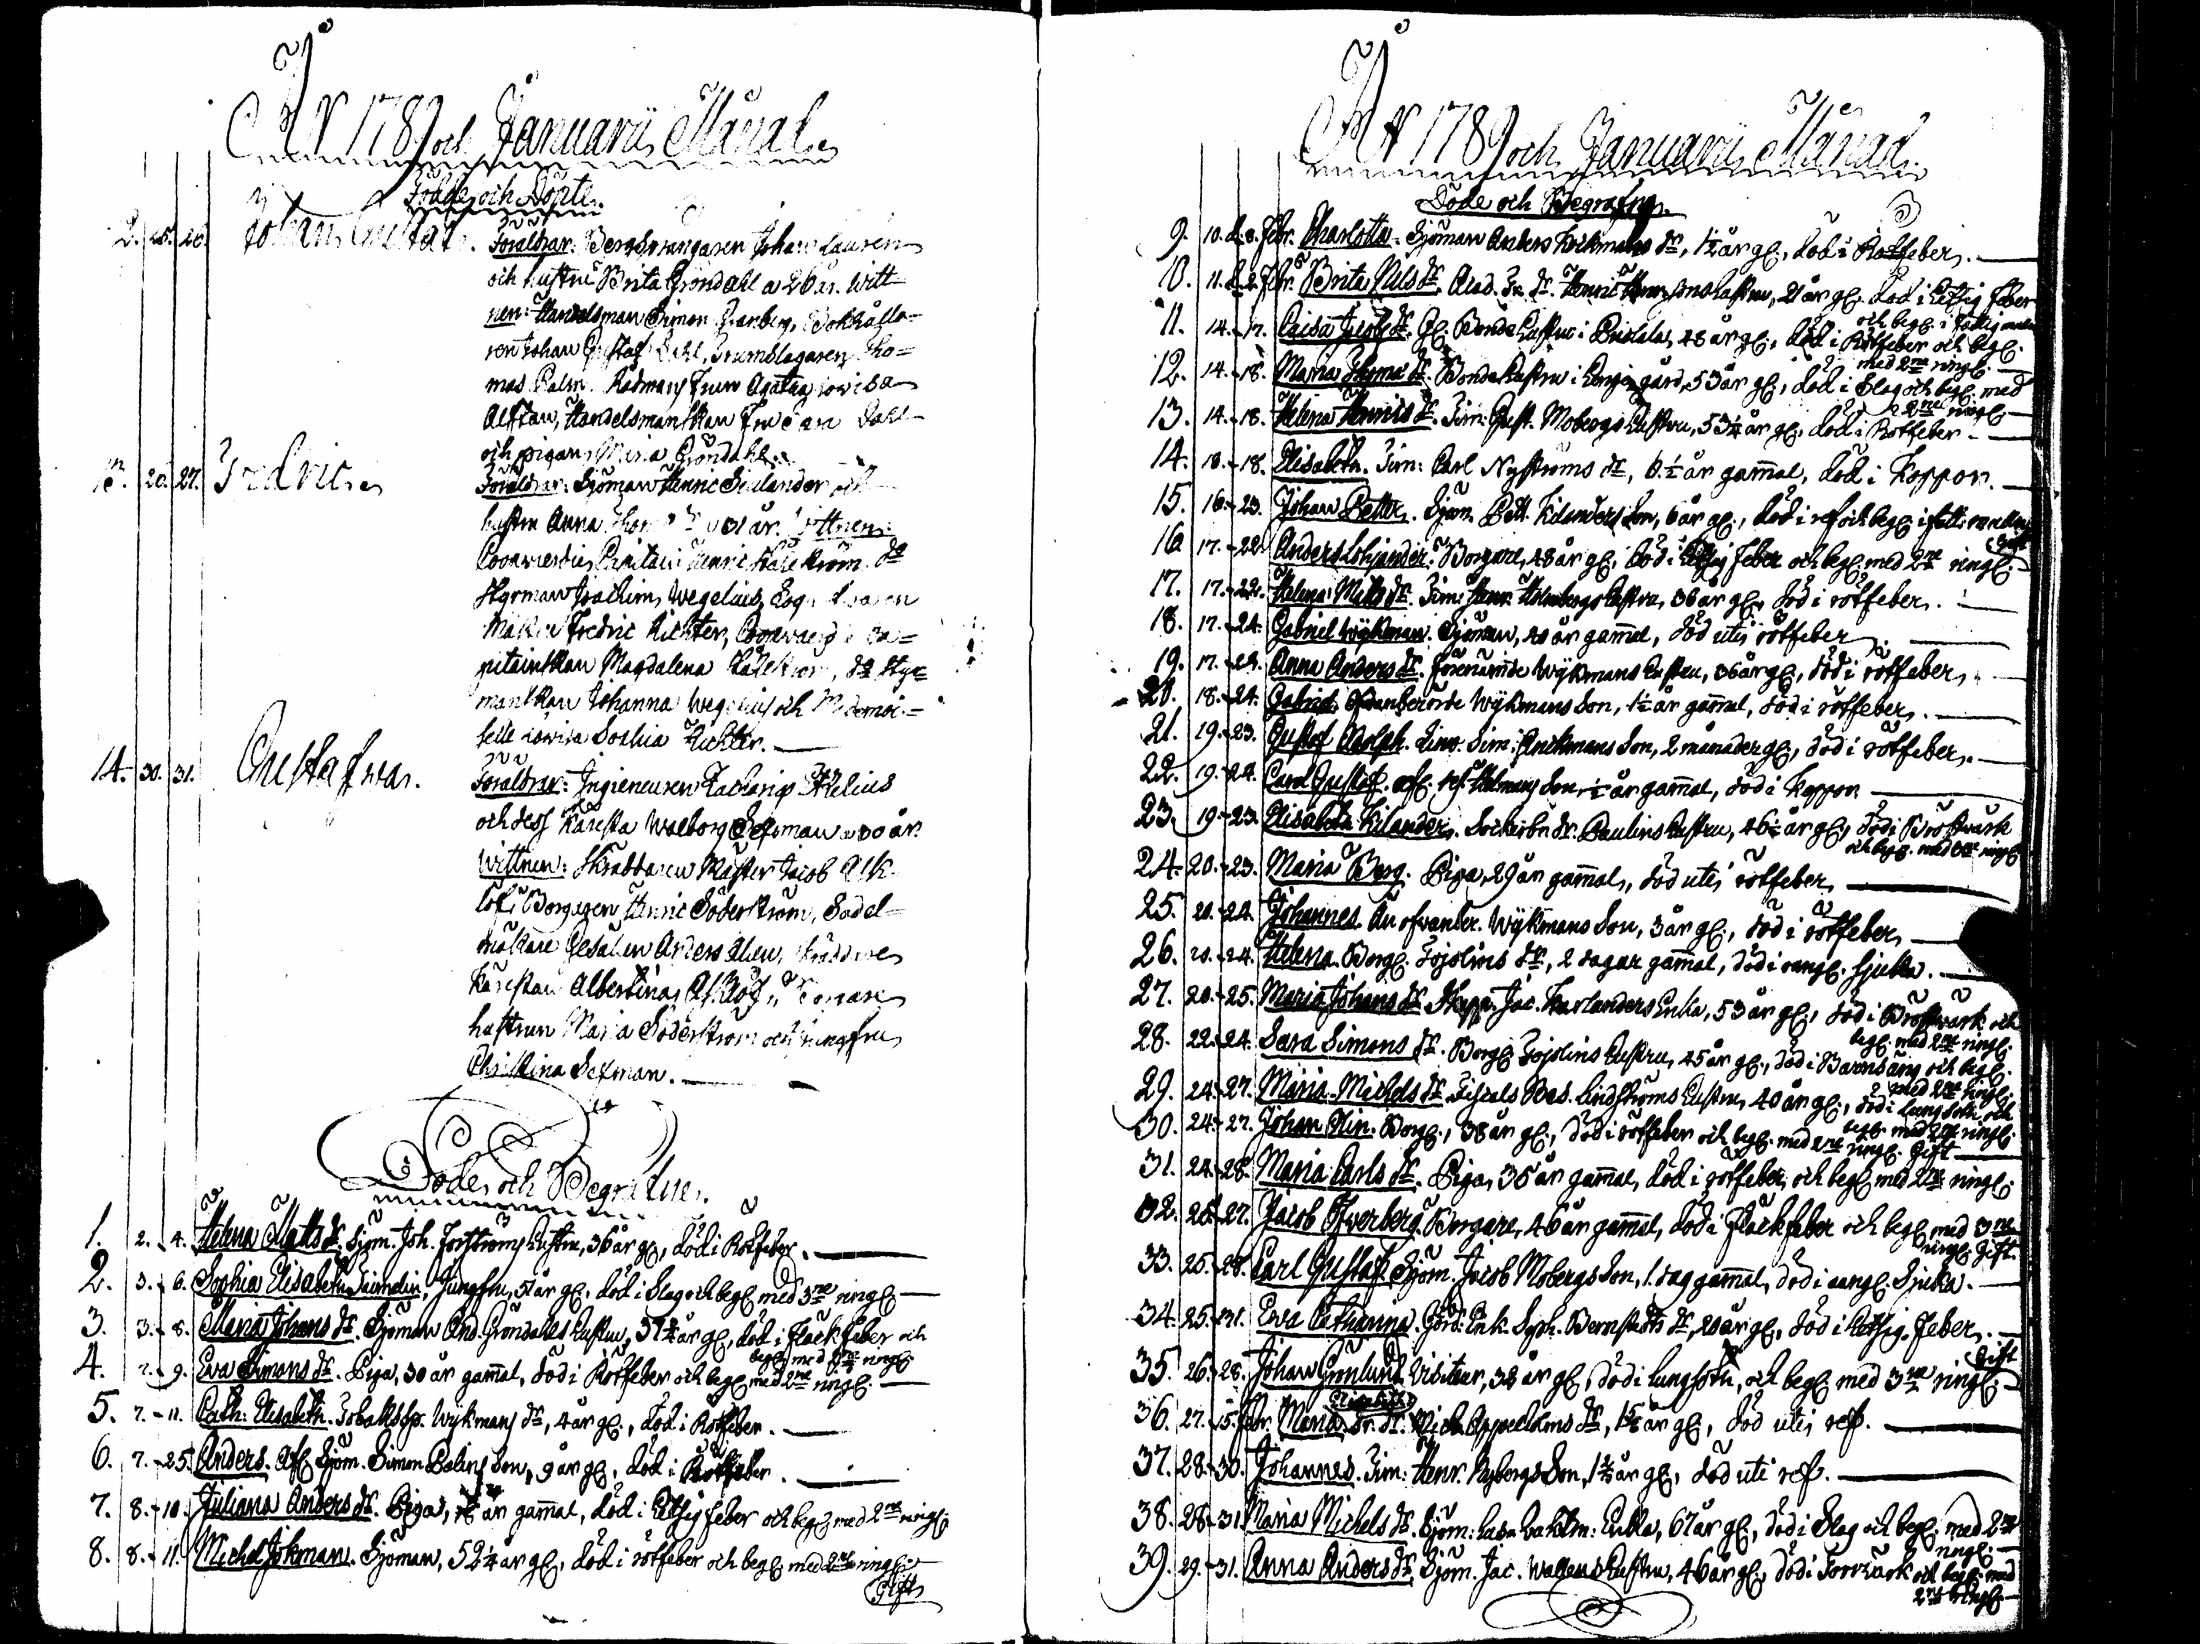 År 1789 och Januarii Månad.
Födde och Döpte.
12. 25. 26. Johan Gustaf. Föräldrar: Bergsprängaren Johan Lauren
och hustru Brita Gröndahl a 26 år. Witt-
nen: Handelsman Simon Granberg, Bokhålla-
ren Johan Gustaf Dahl, Trumslagaren Tho-
mas Palm. Rådmans Frun Agatha Lovisa
Alftan, Handelsmanskan Fru Dahl
och pigan Maria Gröndahl.
13. 20. 27. Fredric. Föräldrar: Sjöman Henric Sinlander och
hustru Anna a 31 år. Wittnen:
Coopvaerdie Capitain Henric
Styrman Joachim Wegelius,
Fredric Richter, Coopvaerdie Ca=
pitainskan Magdalena do Styr=
manskan Johanna Wegelius och Mademoi=
selle Lovisa Sophia Richter.
14. 30. 31. Gustafwa. Föräldrar: Ingieneuren Zacharias
och dess Käresta Walborg Sexman a 30 år.
Wittnen: Skräddaren Mäster Jacob Ask-
löf, Borgaren Henric Söderström, Sadel-
makare Gesällen Anders
Kärestan Albertina Asklöf, Borgare
hustrun Maria Söderström och Jungfru
Christina Sexman.
Döde och Begrafne.
1. 2. 4. Helena Matts dr. Sjöm. Joh. Forströms hustru, 36 år gl, död i Rötfeber.
2. 3. 6. Sophia Elisabeth Jungfru, 51 år gl, död i Slag och begl med 3ne ringl
3. 3. 8. Maria Johans dr. Sjöman And. Gröndahls hustru, 37 år gl, död i Fläckfeber och
begl med ringl
4. 7. 9. Eva Simons dr. Piga, 30 år gammal, död i Rötfeber och begl med 2ne ringl.
5. 7. 11. Cath: Elisabeth. Wykmans dr, 4 år gl, död i Rötfeber.
6. 7. 25. Anders. Afl. Sjöm. Simon Palins Son, 9 år gl, död i Rötfeber.
7. 8. 10. Juliana Anders dr. Piga, år gammal, död i Hetsig feber och begl med 2ne ringl
8. 8. 11. Michel Jökman. Sjöman, 52 1/4 år gl, död i rötfeber och begl med 2ne ringl
Gift
År 1789 och Januarii Månad.
Döde och Begrafne.
3
9. 10. d. 8. Febr. Charlotta. Sjöman Anders dr, 1 1/2 år gl, död i Rötfeber.
10. 11. d. 2. Febr. Brita Nils dr. hustru, 21 år gl, död i Hetsig feber
och begl i fattig
11. 14. 17. Caisa dr. Gl. Bonde hustru i 48 år gl, död i Rötfeber och begl
med 2ne ringl.
12. 14. 18. Maria Thoms dr. Bonde hustru i gård, 53 år gl, död i Slag och begl med
2ne ringl
13. 14. 18. Helena Henrics dr. Tim: Gust. Mobergs hustru, 53 1/4 år gl, död i Rötfeber
14. 18. 18. Elisabeth. Tim: Carl Nyströms dr, 6 1/2 år gammal, död i Koppor.
15. 16. 23. Johan Petter. Sjöm. Pett. Kilanders Son, 6 år gl, död i ref och begl i fatti
16. 17. 22. Anders Lohjander. Borgare, 48 år gl, död i Hetsig Feber och begl med 2ne ringl.
Gift
17. 17. 22. Helena Matts dr. Tim: Henr. Holmbergs hustru, 36 år gl, död i rötfeber.
18. 17. 24. Gabriel Wykman. Sjöman, 40 år gammal, död uti rötfeber
19. 17. 24. Anna Anders dr. Förenämnde Wykmans hustru, 36 år gl, död i rötfeber,
20. 18. 24. Gabriel. Ofvanberörde Wykmans Son, 1 1/2 år gammal, död i rötfeber.
21. 19. 23. Gustaf Adolph. Ankmans Son, 2 månader gl, död i rötfeber.
22. 19. 24. Carl Gustaf. Son, 1/2 år gammal, död i Koppor
23. 19. 23. Elisabeth Kilander. Paulins hustru, 46 1/2 år gl, död i Bröstvärk
och begl. med ringl
24. 20. 23. Maria Berg. Piga, 29 år gammal, död uti rötfeber,
25. 20. 24. Johannes. An ofvanber. Wykmans Son, 3 år gl, död i rötfeber,
26. 20. 24. Helena. Borgl. Fojolins dr, 2 dagar gammal, död i oangl. sjukd.
27. 20. 25. Maria Johans dr. Skepp. Jac. Karlanders Enka, 53 år gl, död i Bröstvärk och
begl med 2ne ringl.
28. 22. 24. Sara Simons dr. Borgl Fojolins hustru, 45 år gl, död i Barnsäng och begl
med 2ne ringl.
29. 24. 27. Maria Michels dr. Fiscals Bes. Lindströms hustru, 40 år gl, död i Lungsoten och
begl. med 2ne ringl.
30. 24. 27. Johan Elin. Borgl, 38 år gl, död i rötfeber och begl med 2ne ringl. Gift
31. 24. 28. Maria Carls dr. Piga, 36 år gammal, död i rötfeber, och begl med 2ne ringl.
32. 25. 27. Jacob Öfverberg. Borgare, 46 år gammal, död i fläckfeber och begl med 3ne
ringl Gift.
33. 25. 28. Carl Gustaf. Sjöm. Jacob Mobergs Son, 1. dag gammal, död i oangl. Sjukd.
34. 25. 31. Eva Catharina. Enk. Soph. Bernstedts dr, 20 år gl, död i hetsig Feber.
35. 26. 28. Johan Grönlund. Visiteur, 38 år gl, död i lungsoten, och begl med 3ne ringl.
Gift
36. 27. 15. Febr. Maria Elisabeth. Mich. Appelboms dr, 1 1/2 år gl, död uti ref.
37. 28. 30. Johannes. Tim: Henr. Nybergs Son, 1 1/2 år gl, död uti ref.
38. 28. 31. Maria Michels dr. Sjöm: Enka, 67 år gl, död i Slag och begl. med 2ne
ringl.
39. 29. 31. Anna Anders dr. Sjöm. Jac. Wallens hustru, 46 år gl, död i Torrvärk och begl med
2ne ringl.